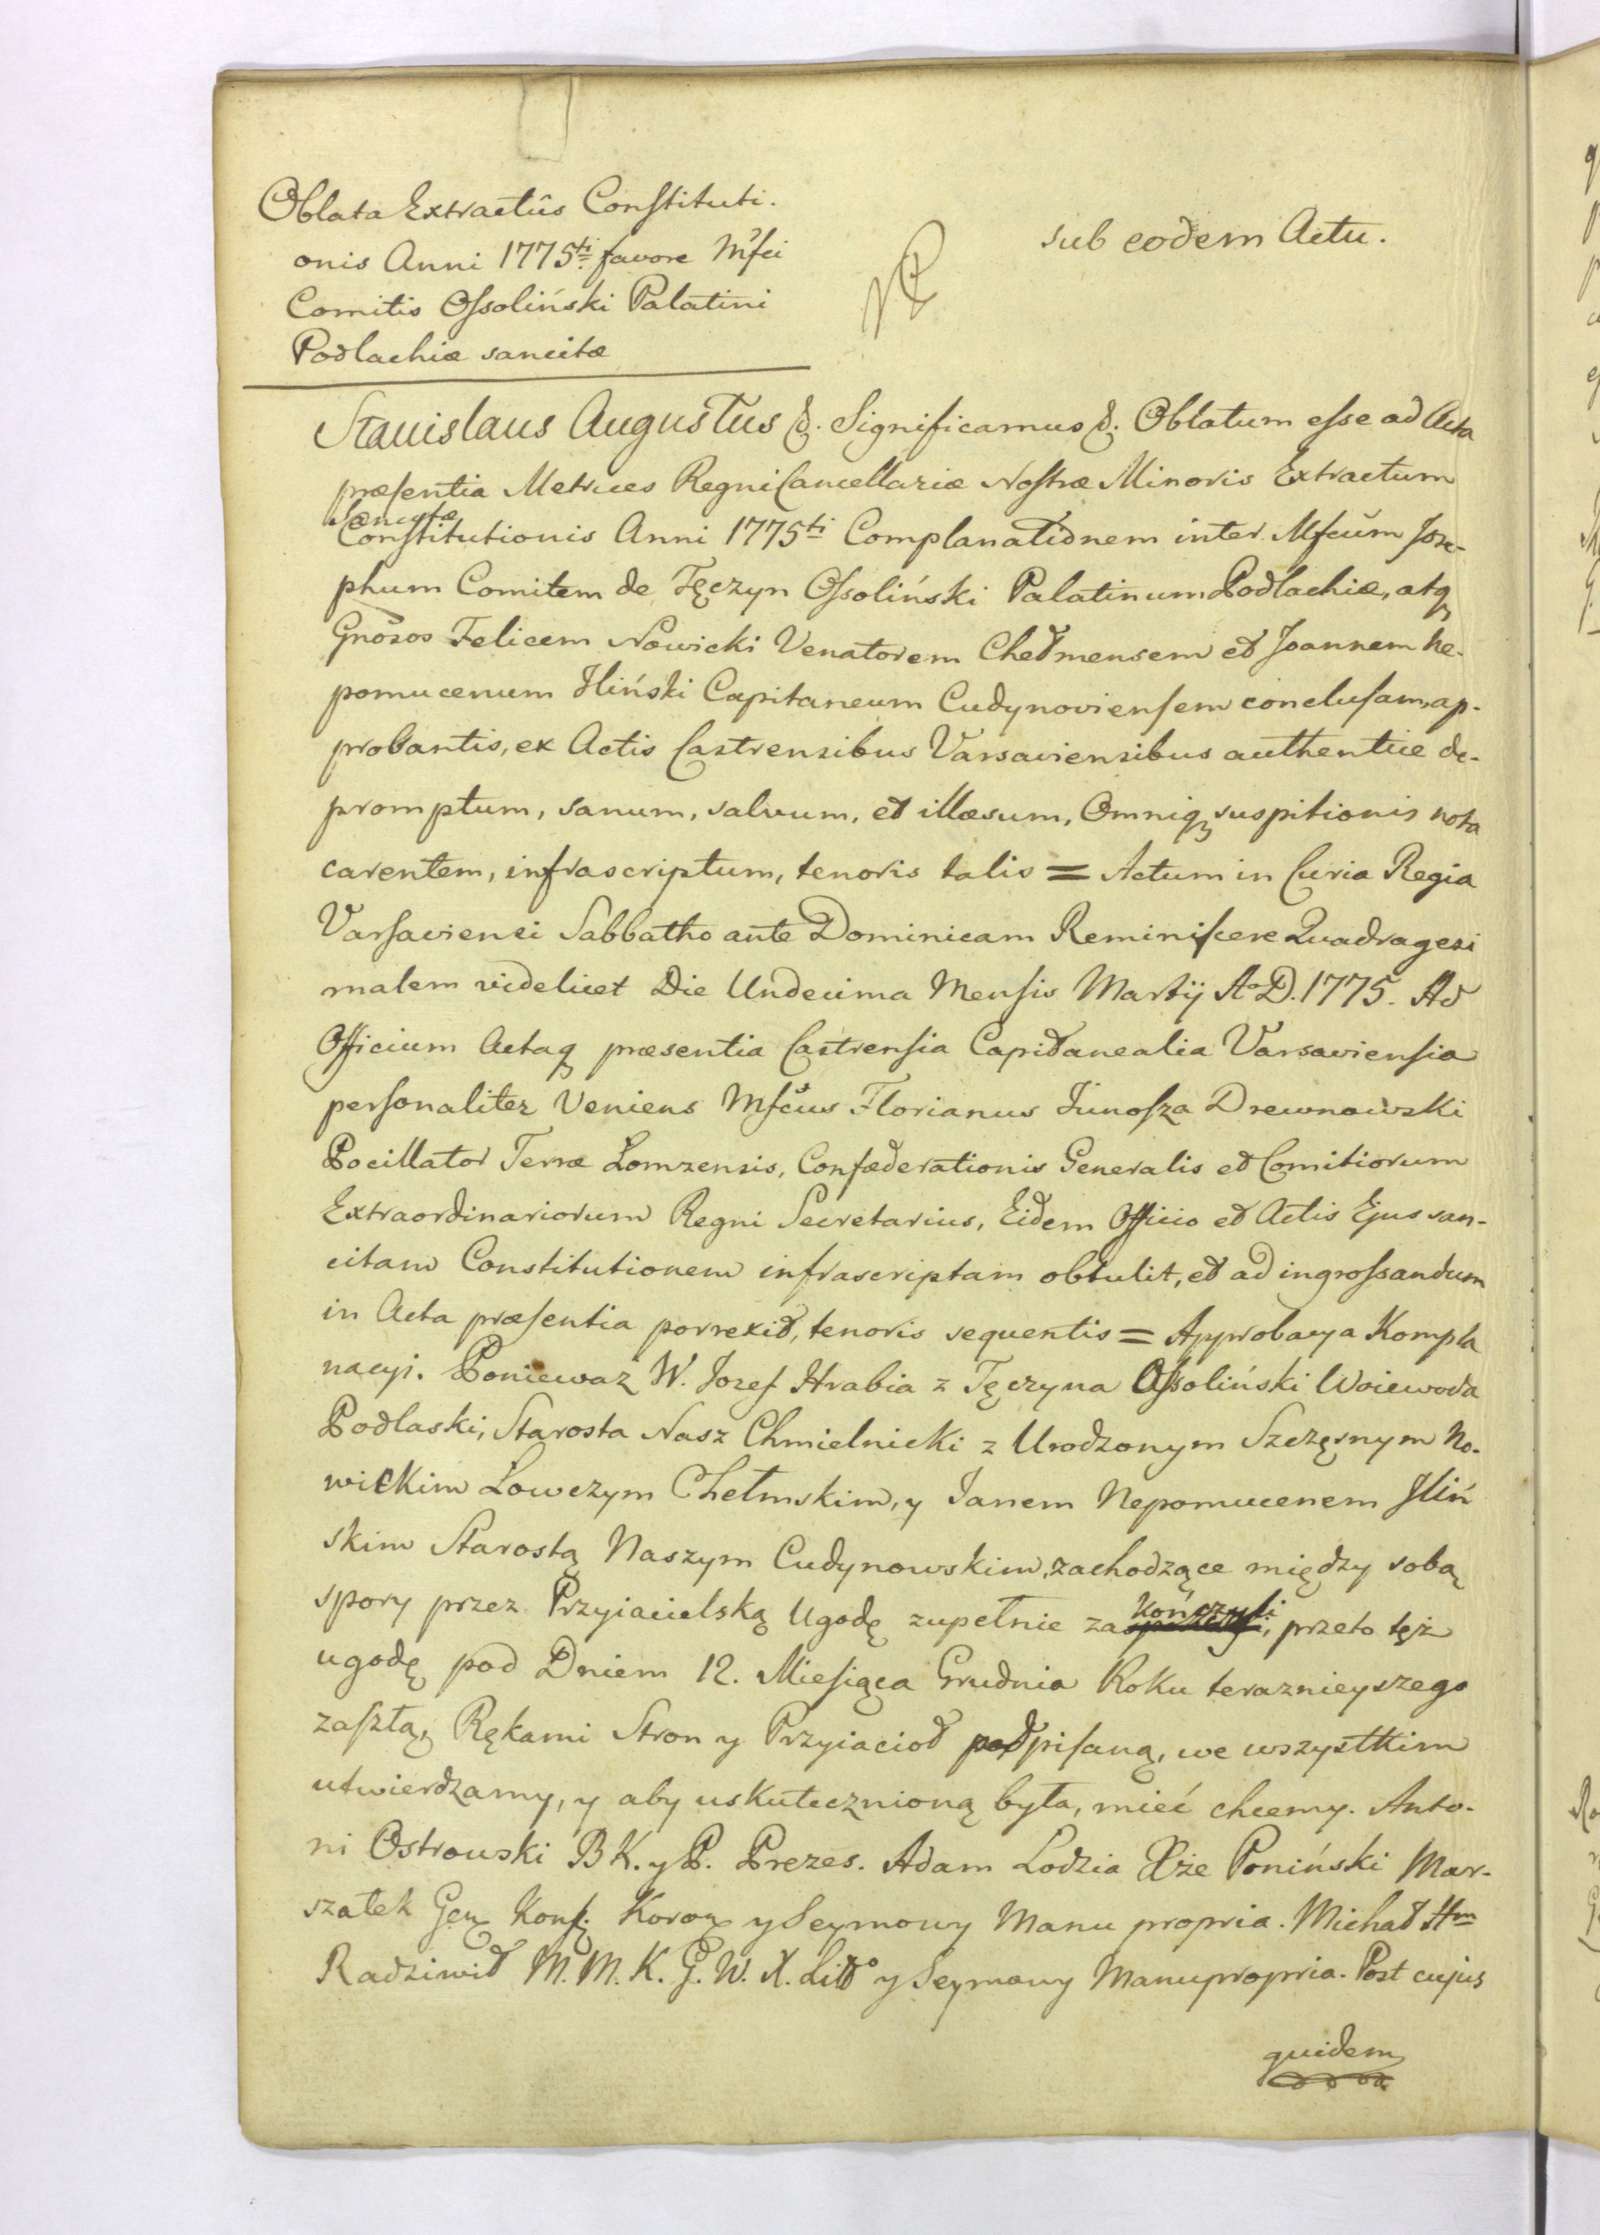 Oblata Extractûs Constituti.
onis Anni 1775ti favore Mfci
Comitis Ossoliński Palatini
Podlachiæ sancitæ
sub eodem Actu.
Stanislaus Augustus &. Significamus &. Oblatum esse ad Acta
præsentia Metrices Regni Cancellariæ Nostræ Minoris Extractum
Sancitæ
Constitutionis Anni 1775ti Complanationem inter Mfcum Jose-
phum Comitem de Tęczyn Ossoliński Palatinum Podlachiæ, atq
Gnosos Felicem Nowicki Venatorem Chełmensem et Joannem Ne-
pomucenum Jliński Capitaneum Cudynoviensem conclusam, ap-
probantis, ex Actis Castrensibus Varsaviensibus authentice de-
promptum, sanum, salvum, et illæsum, Omniq suspitionis nota
carentem, infrascriptum, tenoris talis = Actum in Curia Regia
Varsaviensi Sabbatho ante Dominicam Reminiscere Quadragesi
malem videlicet Die Undecima Mensis Martij Ao D. 1775. Ad
Officium Actaq præsentia Castrensia Capitanealia Varsaviensia
personaliter Veniens Mfcus Florianus Junosza Drewnowski
Pocillator Terræ Lomzensis, Confæderationis Generalis et Comitiorum
Extraordinariorum Regni Secretarius, Eidem Officio et Actis Ejus san-
citam Constitutionem infrascriptam obtulit, et ad ingrossandum
in Acta præsentia porrexit, tenoris sequentis = Approbacya Kompla
nacyi. Poniewaz W. Jozef Hrabia z Tęczyna Ossoliński Woiewoda
Podlaski, Starosta Nasz Chmielnicki z Urodzonym Szczęsnym No-
wickim Łowczym Chełmskim, y Janem Nepomucenem Jliń
skim Starostą Naszym Cudynowskim, zachodzące między sobą
spory przez Przyiacielską Ugodę zupełnie zakończyli, przeto tęż
ugodę pod Dniem 12. Miesiąca Grudnia Roku teraznieyszego
zaszłą, Rękami Stron y Przyiacioł podpisaną, we wszystkim
utwierdzamy, y aby uskutecznioną była, mieć chcemy. Anto-
ni Ostrowski B K. y P. Prezes. Adam Lodzia Xże Poniński Mar-
szałek Gen Konf. Koron y Seymowy Manu propria. Michał Hm
Radziwił M. M. K. G. W. X. Litto y Seymowy Manupropria. Post cujus
quidem